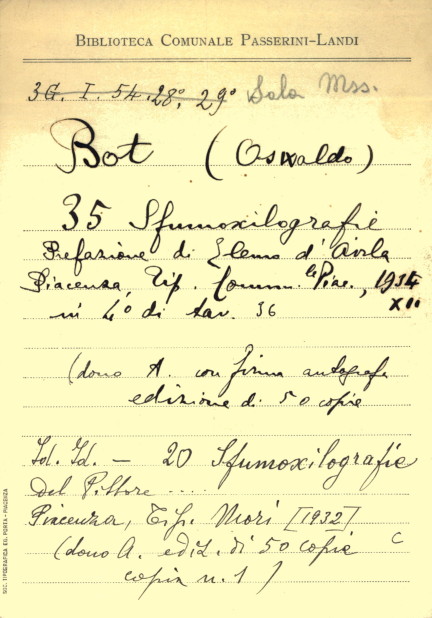 BIBLIOTECA COMUNALE PASSERINI-LANDI
3G. I. 54. 28°. 29° Sala Mss.
Bot (Oswaldo)
35 Sfumoxilografie
Prefazione di d'Avila
Piacenza, Tip. Comm.le Piac., 1934
XII
in 4° di tav. 36
(dono A. con firma autografa
edizione di 50 copie
Id. Id. — 20 Sfumoxilografie
del Pittore ....
Piacenza, Tip. Mori [1932]
(dono A. ediz. di 50 copie C
copia n. 1)
SOC. TIPOGRAFICA ED. PORTA - PIACENZA